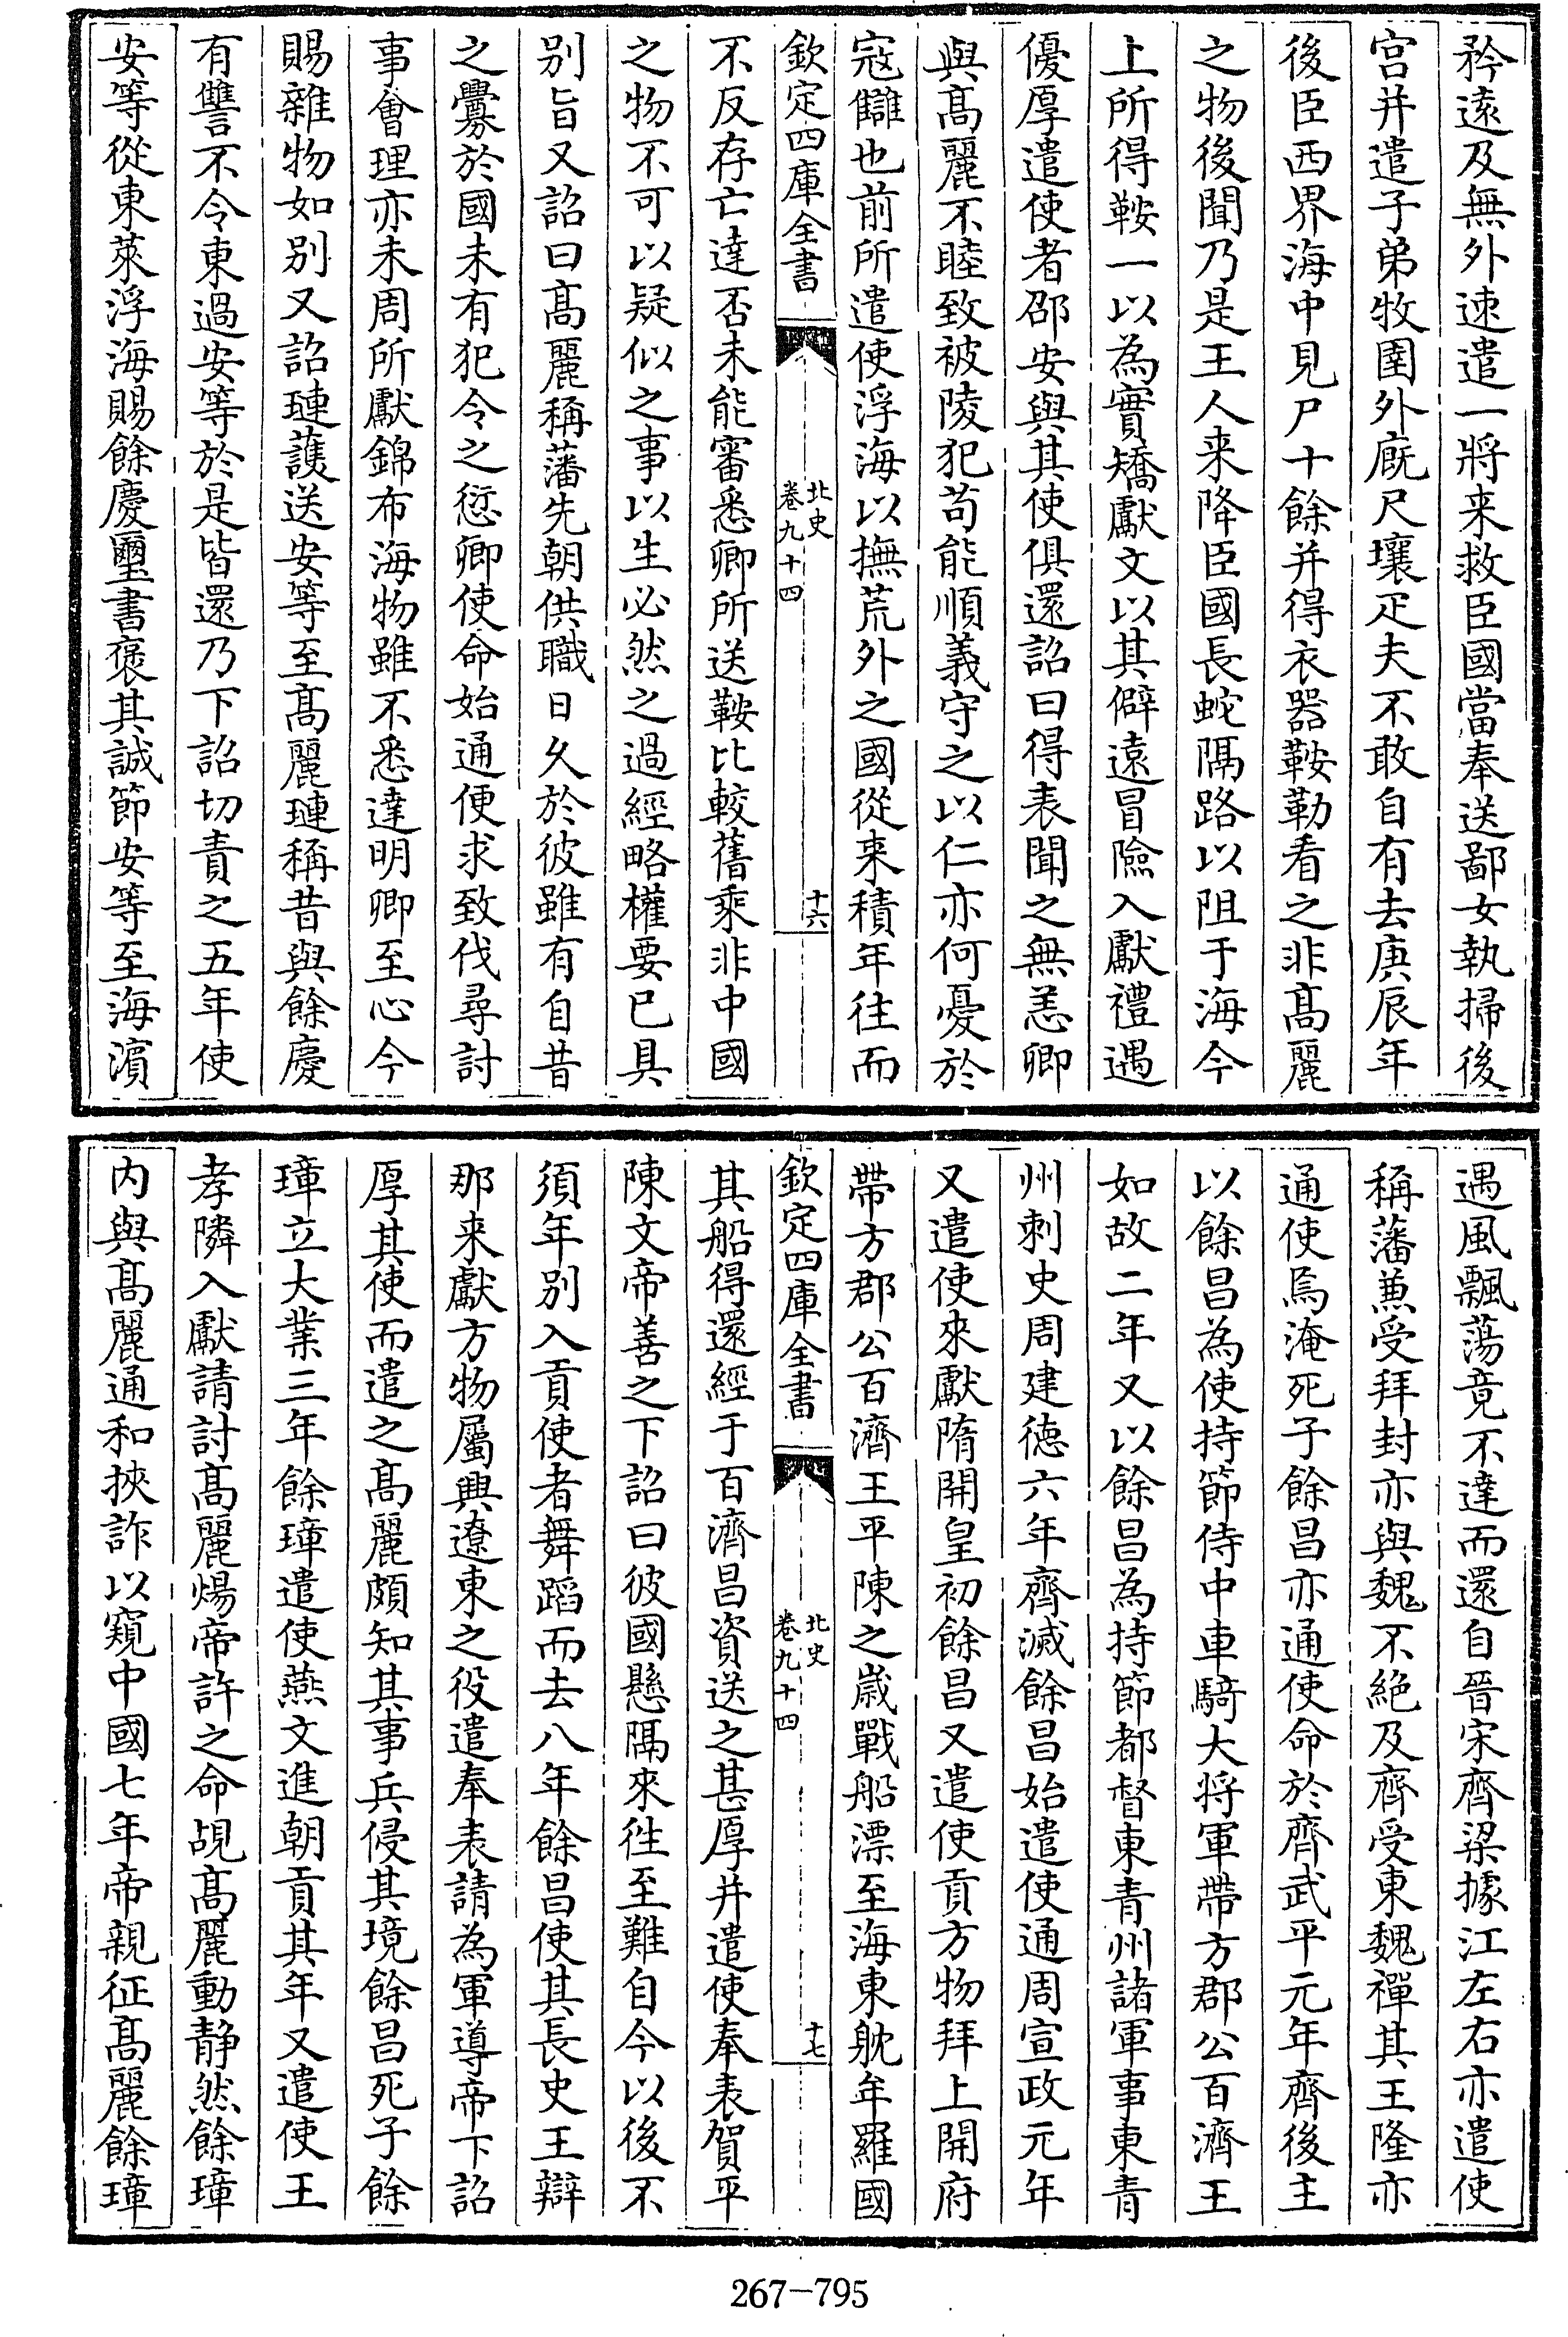 矜遠及無外速遣一將来救臣國當奉送鄙女執掃後
宫并遣子弟牧圉外廐尺壤疋夫不敢自有去庚辰年
後臣西界海中見尸十餘并得衣器鞍勒看之非髙麗
之物後聞乃是王人来降臣國長蛇隔路以阻于海今
上所得鞍一以為實矯獻文以其僻遠冒險入獻禮遇
優厚遣使者邵安與其使俱還詔曰得表聞之無恙卿
與髙麗不睦致被陵犯苟能順義守之以仁亦何憂於
寇讎也前所遣使浮海以撫荒外之國從来積年往而
欽定四庫全書
北史
卷九十四
十六
不反存亡達否未能審悉卿所送鞍比較舊乘非中國
之物不可以疑似之事以生必然之過經略權要已具
别旨又詔曰髙麗稱藩先朝供職日乆於彼雖有自昔
之釁於國未有犯令之愆卿使命始通便求致伐尋討
事㑹理亦未周所獻錦布海物雖不悉達明卿至心今
賜雜物如别又詔璉護送安等至髙麗璉稱昔與餘慶
有讐不令東過安等於是皆還乃下詔切責之五年使
安等從東萊浮海賜餘慶璽書褒其誠節安等至海濱
遇風飄蕩竟不達而還自晉宋齊梁據江左右亦遣使
稱藩兼受拜封亦與魏不絶及齊受東魏禪其王隆亦
通使焉淹死子餘昌亦通使命於齊武平元年齊後主
以餘昌為使持節侍中車騎大将軍帶方郡公百濟王
如故二年又以餘昌為持節都督東青州諸軍事東青
州刺史周建德六年齊滅餘昌始遣使通周宣政元年
又遣使來獻隋開皇初餘昌又遣使貢方物拜上開府
帶方郡公百濟王平陳之嵗戰船漂至海東躭牟羅國
欽定四庫全書
北史
卷九十四
十七
其船得還經于百濟昌資送之甚厚并遣使奉表賀平
陳文帝善之下詔曰彼國懸隔來徃至難自今以後不
須年别入貢使者舞蹈而去八年餘昌使其長史王辯
那来獻方物屬興遼東之役遣奉表請為軍導帝下詔
厚其使而遣之髙麗頗知其事兵侵其境餘昌死子餘
璋立大業三年餘璋遣使燕文進朝貢其年又遣使王
孝隣入獻請討髙麗煬帝許之命覘髙麗動静然餘璋
内與髙麗通和挾詐以窺中國七年帝親征髙麗餘璋
267-795